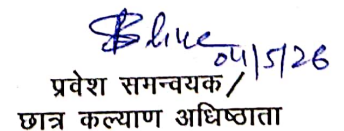 04/5/26
प्रवेश समन्वयक /
छात्र कल्याण अधिष्ठाता